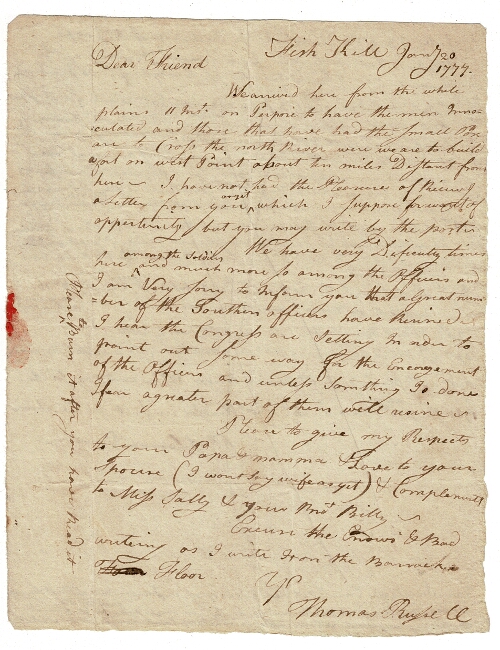 Fish Kill Jany 20
1777.
Dear Friend
We arived here from the white
plains 11 Inst. on Perpose to have the men Inno
culated and those that have had the Small Pox
are to Cross the north River were we are to build
a fort on west Point about ten miles Distant from
here I have not had the Pleasure of Receivg
a Letter from you as yet which I suppose for want of
oppertunity but you may write by the posts
We have very Dificulty times
here among the Soldiers and much more so among the Officers and
I am Very Sorry to Inform you that a Great num
ber of the Southern officers have Resined
I hear the Congress are Setting in order to
point out Some way for the Encorogement
of the Officers and unless Somthing Is done
I fear a greater part of them will resine
Please to give my Respects
to your Papa & mamma & Love to your
Spouse (I wont Say wife as yet) & Complements
to Miss Sally & your Bror. Billy
Excuse the & Bad
writing as I write from the Barrack
Floor
Yrs
Thomas Russell
Please to Burn it after you have Read it